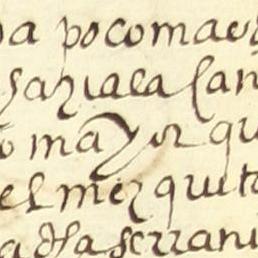 a poco mas
hazia la san
o mayor qu
el mezquit
a dha serrani